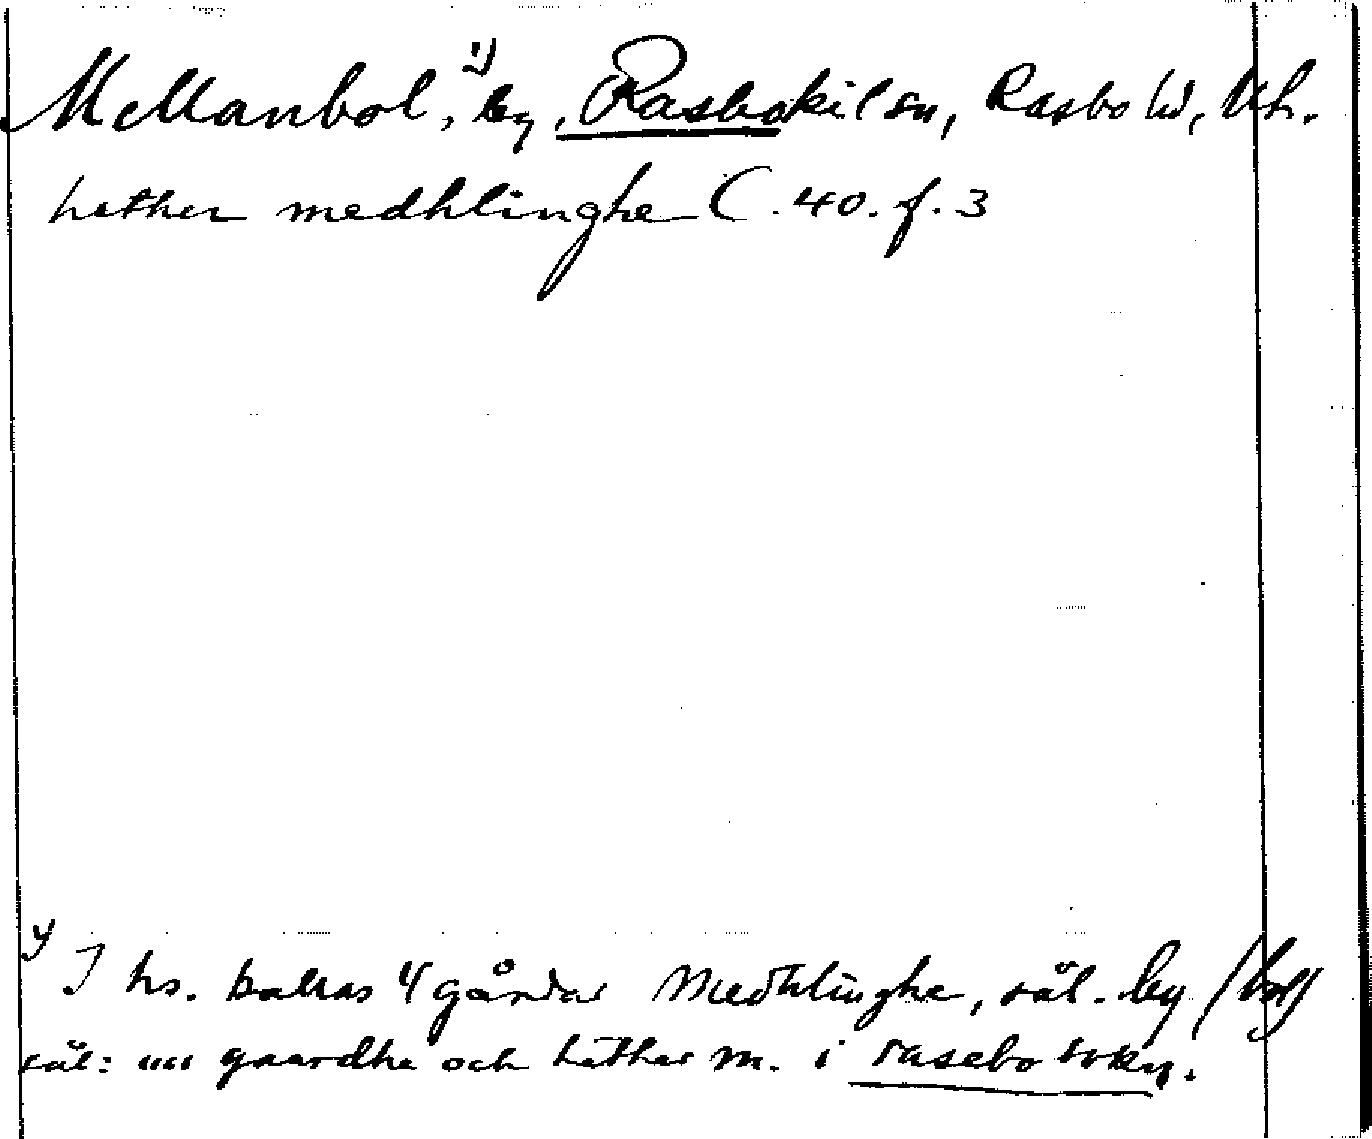 Mellanbol, 1) by, Rasbokil sn, Rasbo hd, Uh.
hether medhlinghe C. 40. f. 3
1) I hs. kallas 4 gårdar Medhlinghe, väl. by (bol)
väl: ıııı gaardhe och hether m. i rasebo sokn.